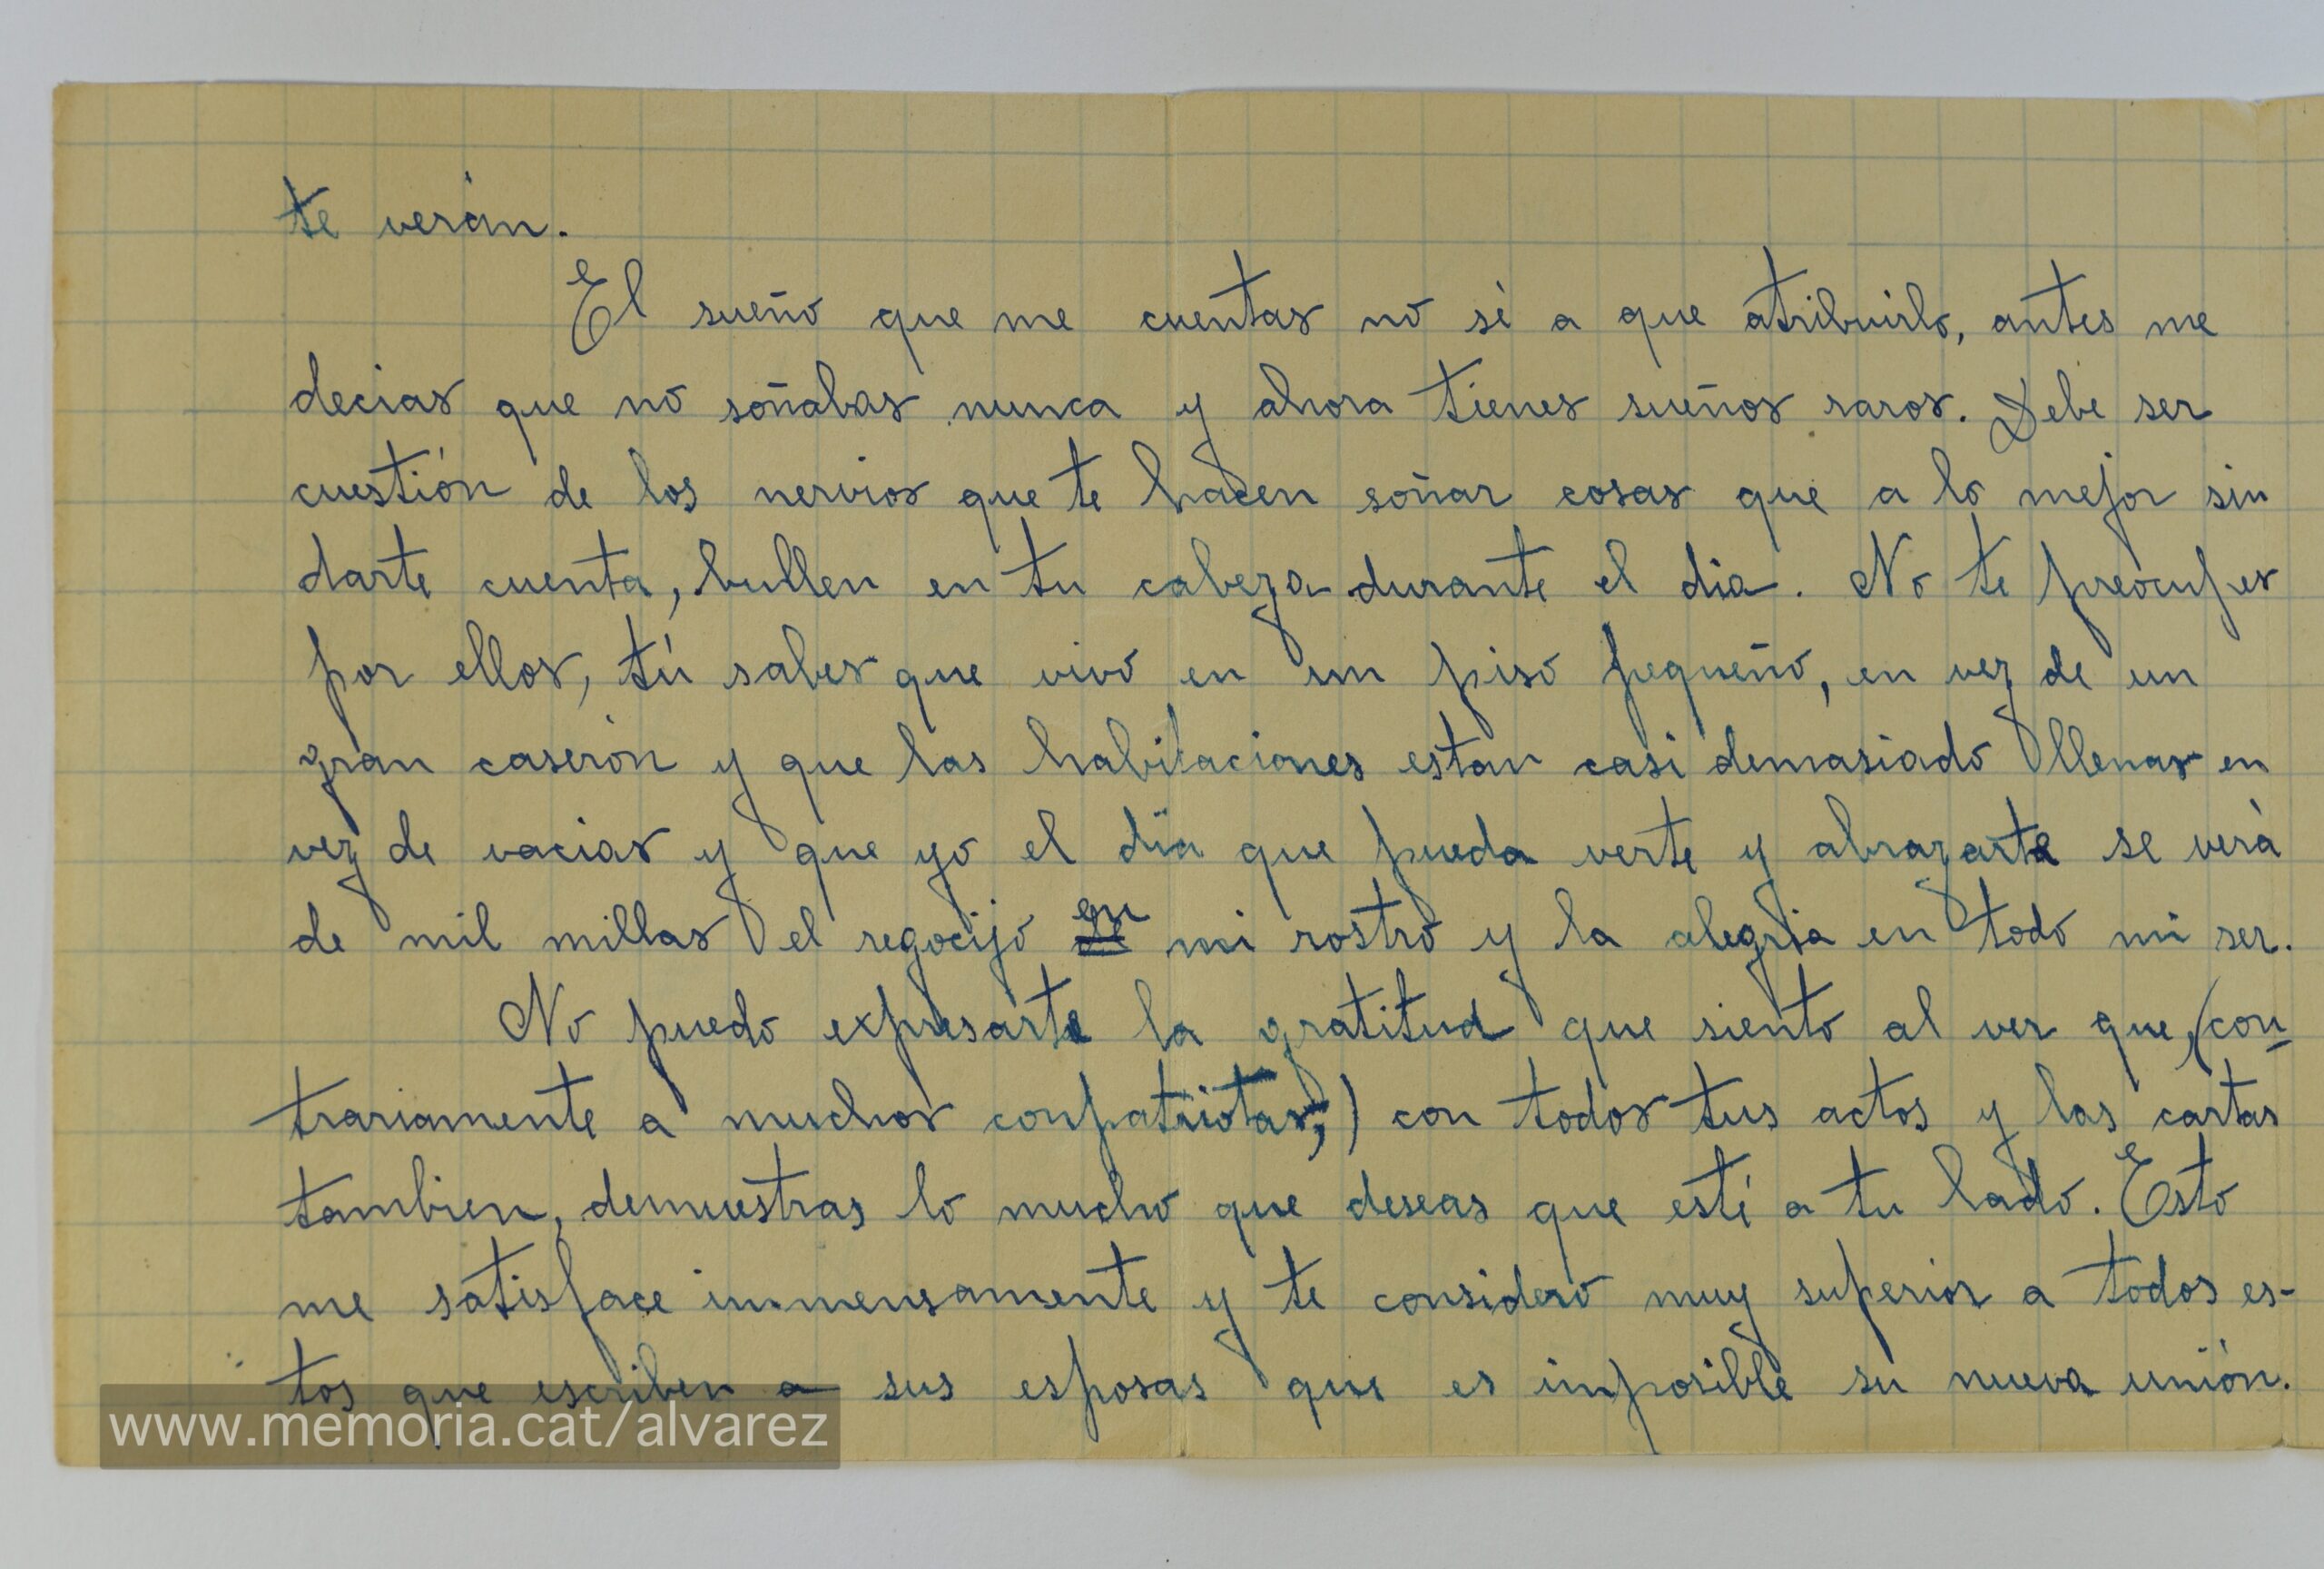 te verán.
El sueño que me cuentas no sé a que atribuirlo, antes me
decias que no soñabas nunca y ahora tienes sueños raros. Debe ser
cuestión de los nervios que te hacen soñar cosas que a lo mejor sin
darte cuenta, bullen en tu cabeza durante el dia. No te preocupes
por ellos, tú sabes que vivo en un piso pequeño, en vez de un
gran caserón y que las habitaciones estan casi demasiado llenas en
vez de vacias y que yo el día que pueda verte y abrazarte se verá
de mil millas el regocijo en mi rostro y la alegria en todo mi ser.
No puedo expresarte la gratitud que siento al ver que, (con-
trariamente a muchos conpatriotas,) con todos tus actos y las cartas
tambien, demuestras lo mucho que deseas que esté a tu lado. Esto
me satisface inmensamente y te considero muy superior a todos es-
tos que escriben a sus esposas que es imposible su nueva unión.
www.memoria.cat/alvarez